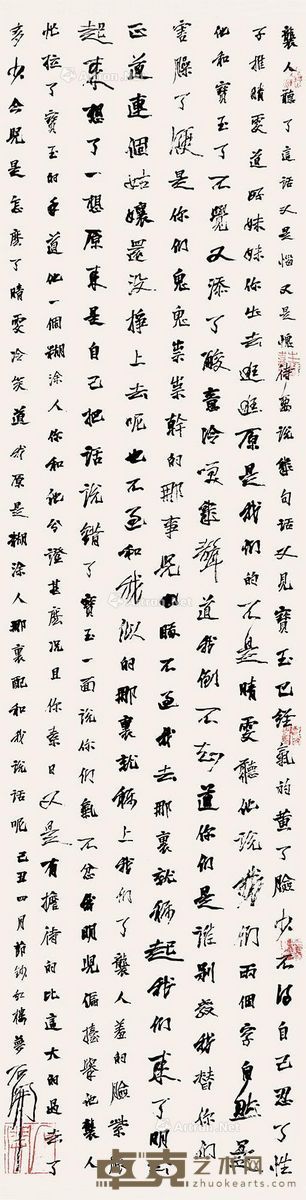 襲人聽了這話又是惱又是愧待要說幾句話又見寶玉已經氣的黃了臉少不得自己忍了性
子推晴雯道好妹妹你出去逛逛原是我們的不是晴雯聽他說我們兩個字自然是
他和寶玉了不覺又添了酸意冷笑幾聲道我倒不知道你們是誰別教我替你們
害臊了便是你們鬼鬼祟祟幹的那事兒也瞞不過我去那裏就稱起我們來了明公
正道連個姑娘還沒掙上去呢也不過和我似的那裏就稱上我們了襲人羞的臉紫脹
起來想了一想原來是自己把話說錯了寶玉一面說你們氣不忿我明兒偏擡舉他襲人
忙拉了寶玉的手道他一個糊塗人你和他分證甚麼況且你素日又是有擔待的比這大的過去了
多少今兒是怎麼了晴雯冷笑道我原是糊塗人那裏配和我說話呢 己丑四月節鈔紅樓夢 石開
卓克艺术网
zhuokearts.com